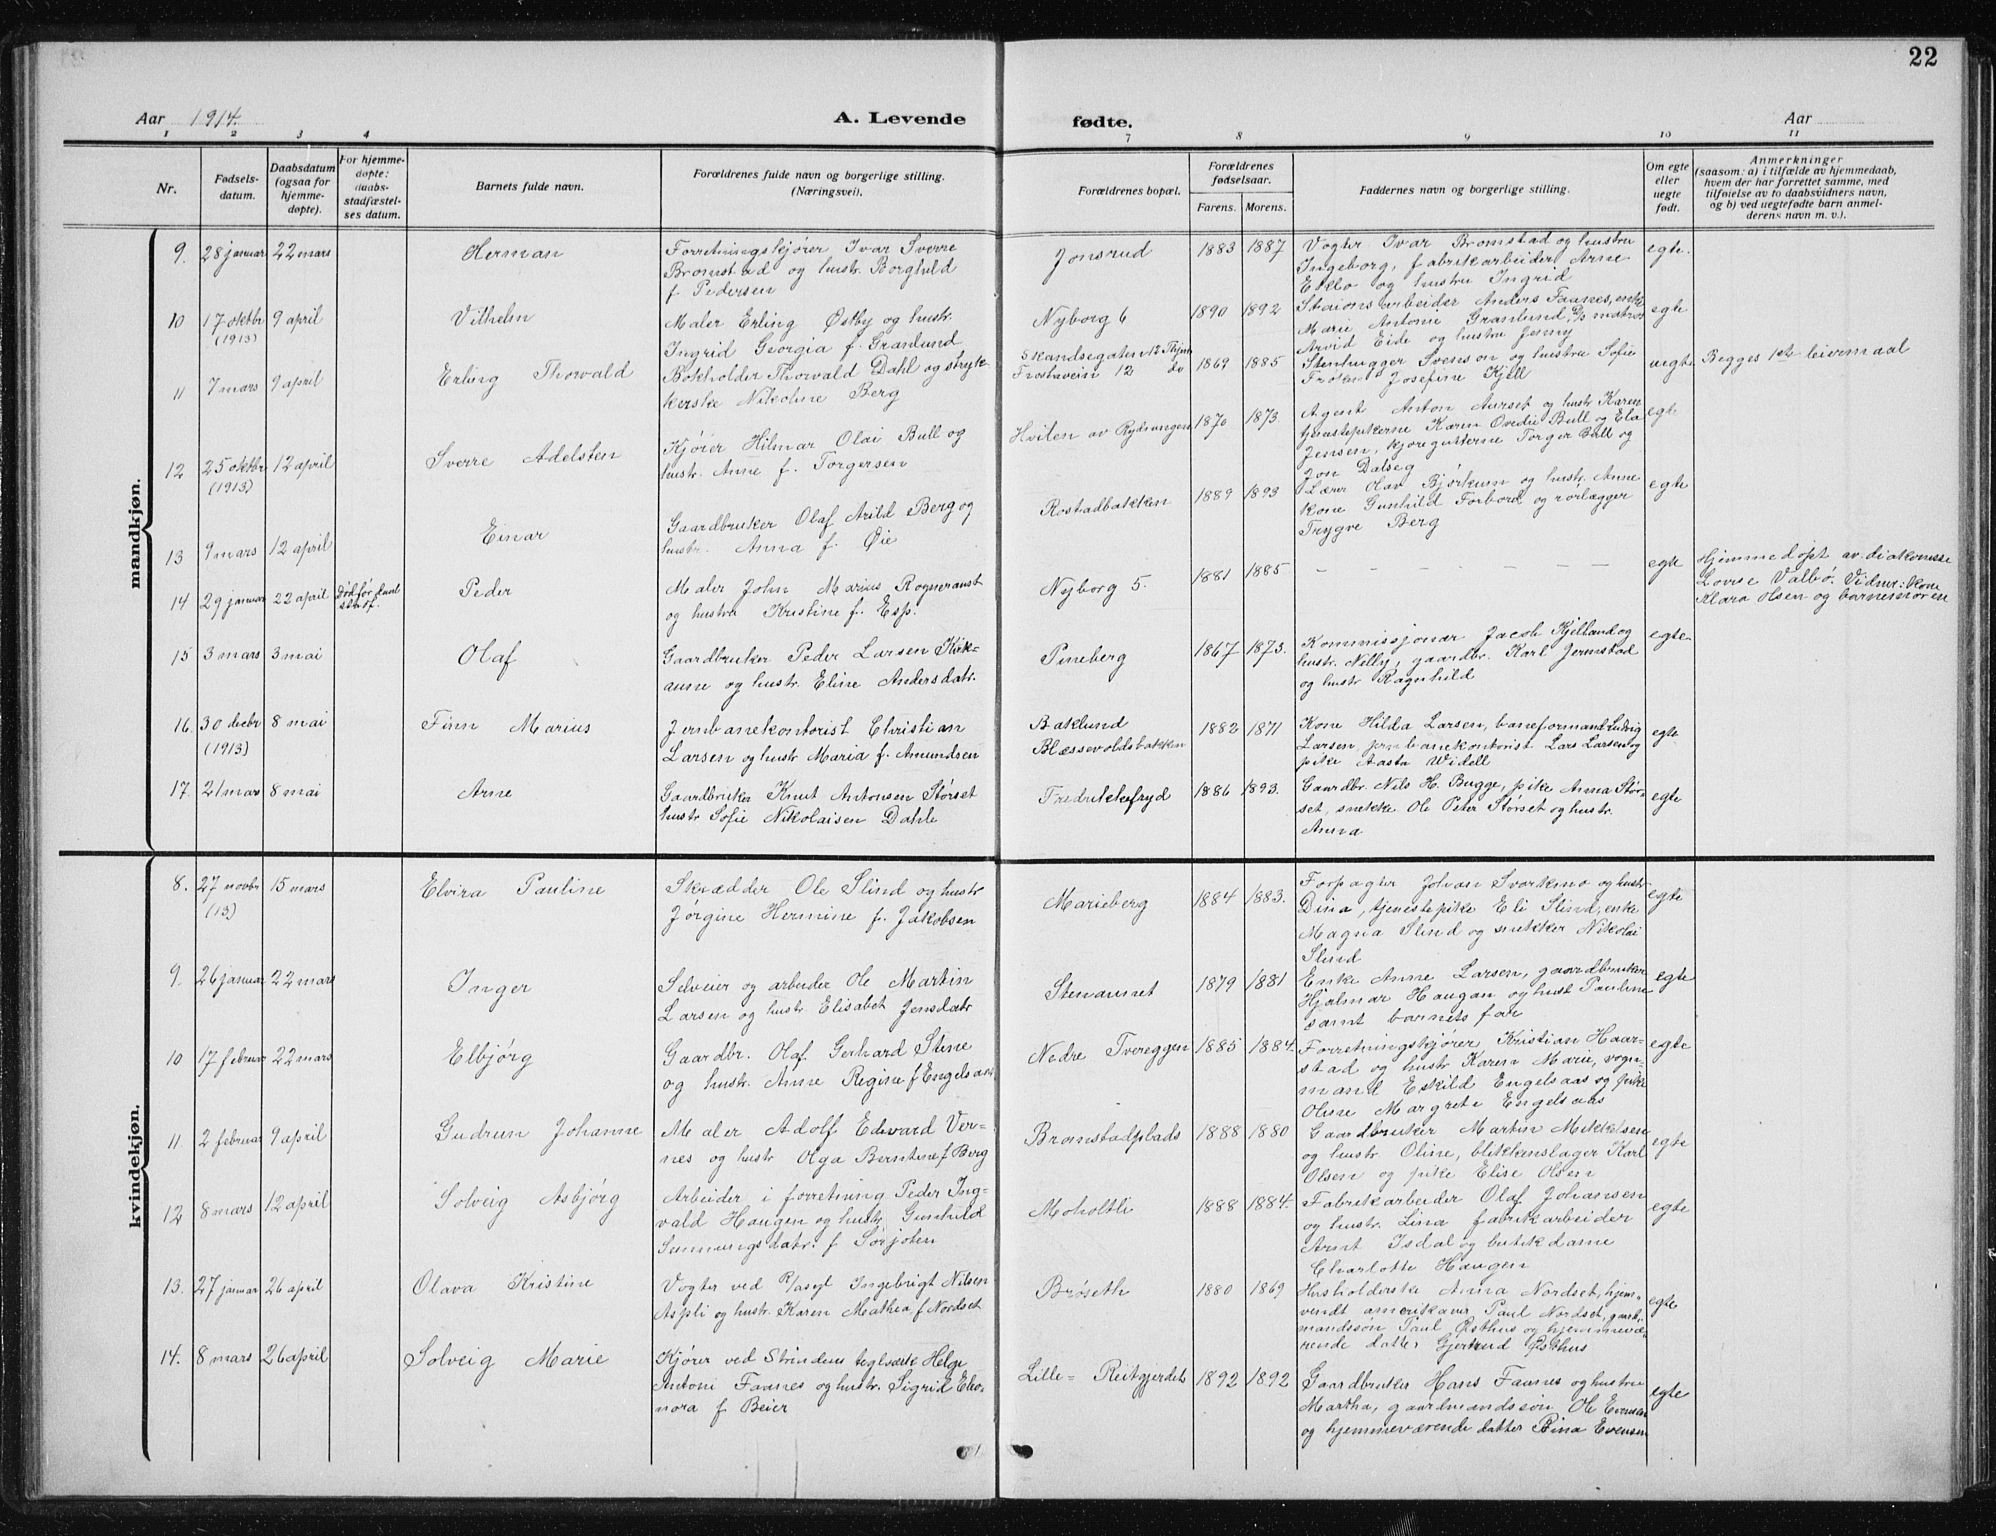 22
Aar 1914.
A. Levende
fødte.
Aar
1 2 3 4
7 8 9 10 11
Nr.
Fødsels-
datum.
Daabsdatum
(ogsaa for
hjemme-
døpte).
For hjemme-
døpte:
daabs-
stadfæstel-
ses datum.
Barnets fulde navn.
Forældrenes fulde navn og borgerlige stilling.
(Næringsvei).
Forældrenes bopæl.
Forældrenes
fødselsaar.
Farens. Morens.
Faddernes navn og borgerlige stilling.
Om egte
eller
uegte
født.
Anmerkninger
(saasom: a) i tilfælde av hjemmedaab,
hvem der har forrettet samme, med
tilføielse av to daabsvidners navn,
og b) ved uegtefødte barn anmel-
derens navn m. v.).
mandkjøn.
9. 28 januar 22 mars
Herman
Forretningskjører Ivar Sverre
Bromstad og hustr. Borghild
f. Pedersen
Jonsrud
1883 1887
Vogter Ivar Bromstad og hustru
Ingeborg, fabrikarbeider Arne
Eklo og hustru Ingrid
egte.
10 17 oktbr 9 april
(1913)
Vilhelm
Maler Erling Østby og hustr.
Ingrid Georgia f. Granlund
Nyborg 6
1890 1892
Staionsarbeider Anders Faanes, enke
Marie Antonie Granlund, matros
Arvid Eide og hustru Jenny
egte
11 7 mars 9 april
Erling Thorvald
Bokholder Thorvald Dahl og stryk-
kerske Nikoline Berg
Skandsegaten 12 Thjem
Frostaveien 12 do
1869 1885
Stenhugger Svenson og hustru Sofie
Frøken Josefine Kjell
uegte
Begges 1ste leiermaal
12 25 oktbr 12 april
(1913)
Sverre Adelsten
Kjører Hilmar Olai Bull og
hustr. Anne f. Torgersen
Hviten av Rydningen
1870 1873
Agent Anton Aurset og hustr. Karen
tjenestepikerne Karen Ovedie Bull og Ela
Jensen, kjøregutterne Torger Bull og
Jon Dalseg
egte
13 9 mars 12 april
Einar
Gaardbruker Olaf Arild Berg og
hustr. Anna f. Øie
Rostadbakken
1889 1893
Lærer Olav Bjørkum og hustr. Anne
kone Gunhild Forbord og rørlægger
Trygve Berg
egte
14 29 januar 22 april
Død før daab
stadf.
Peder
Maler John Marius Rogneraust
og hustru Kristine f. Esp.
Nyborg 5.
1881 1885
— — — — — — —
egte
Hjemmedøpt av diakonisse
Lovise Valbø. Vidner: kone
Klara Olsen og barnemoren
15 3 mars 3 mai
Olaf
Gaardbruker Peder Larsen Kirk-
aune og hustr. Eline Andersdatr.
Pineberg
1867 1873.
Kommissjonær Jacob Kjelland og
hustr. Nelly, gaardbr. Karl Jermstad
og hustr Ragnhild
egte
16. 30 decbr 8 mai
(1913)
Finn Marius
Jernbanekontorist Christian
Larsen og hustr Maria f. Amundsen
Baklund
Blæssevoldsbakken
1882 1871
Kone Hilda Larsen, baneformand Ludvig
Larsen, jernbanekontorist Lars Larsen og
pike Aasta Widell
egte
17. 21 mars 8 mai
Arne
Gaardbruker Knut Antonsen Størset
hustr Sofie Nikolaisen Dahle
Fredrikkefryd
1886 1893.
Gaardbr. Nils H. Bugge, pike Anna Stør-
set, snekke Ole Peter Størset og hustr.
Anna
egte
kvindekjøn.
8. 27 novbr 15 mars
(13)
Elvira Pauline
Skrædder Ole Slind og hustr
Jørgine Hermine f. Jakobsen
Marieberg
1884 1883.
Forpagter Johan Svorkmo og hustr
Dina, tjenestepike Eli Slind, enke
Magna Slind og snekker Nikolai
Slind
egte
9. 26 januar 22 mars
Inger
Selveier og arbeider Ole Martin
Larsen og hustr. Elisabet Jensdatr
Stenaunet
1879 1881
Enke Anne Larsen, gaardbruker
Hjalmar Haugan og hust Pauline
samt barnets far
egte
10 17 februar 22 mars
Elbjørg
Gaardbr. Olaf Gerhard Stine
og hustr. Anne Regine f Engelsaas
Nedre Tvereggen
1885 1884.
Forretningskjører Kristian Haar-
stad og hustr Karen Marie, vogn-
mand Eskild Engelsaas og pike
Oline Margrete Engelsaas
egte
11 2 februar 9 april
Gudrun Johanne
Maler Adolf Edward Ver-
nes og hustr Olga Berntine f Berg
Bromstadplads
1888 1880
Gaardbruker Martin Mikkelsen
og hustr Oline, blikkenslager Karl
Olsen og pike Elise Olsen
egte
12 8 mars 12 april
Solveig Asbjørg
Arbeider i forretning Peder Ing-
vald Haugen og hustr. Gunhild
Simmungsdatr. f Sørjoten
Moholtli
1888 1884.
Fabrikarbeider Olaf Johansen
og hustr. Lina fabrikarbeider
Arnt Isdal og butikdame
Charlotte Haugen
egte
13. 27 januar 26 april
Olava Kristine
Vogter ved R/asyl Ingebrigt Nilsen
Aspli og hustr. Karen Mathea f Nordset
Brøseth
1880 1869
Husholderske Anna Nordset, hjem-
vendt amerikaner Paul Nordset, gaard-
mandssøn Paul Østhus og hjemmevæ-
rende datter Gjertrud Østhus
egte
14. 8 mars 26 april
Solveig Marie
Kjører ved Strindens teglværk Helge
Antoni Faanes og hustr. Sigrid Eleo-
nora f Beier
Lille- Reitgjerdet
1892 1892
Gaardbruker Hans Faanes og hustru
Martha, gaardmandssøn Ole Evensen
og hjemmeværende datter Rina Evensen
egte